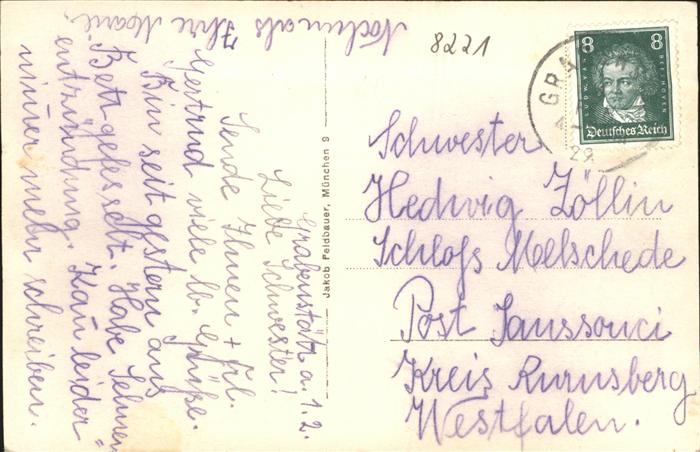 Grabenstätt a. 1.2.
Liebe Schwester!
Sende Ihnen + Frl.
Gertrud viele lb. Grüße.
Bin seit gestern ans
Bett gefesselt. Habe Sehnen
entzündung. Kann leider
nimmer mehr schreiben.
Nochmals Ihre
Jakob Feldbauer, München 9
8221
GRA
29
8 8
LUDW. VAN BEETHOVEN
Deutsches Reich
Schwester
Hedwig Zöllin
Schloss Melschede
Post Sanssouci
Kreis
Westfalen.